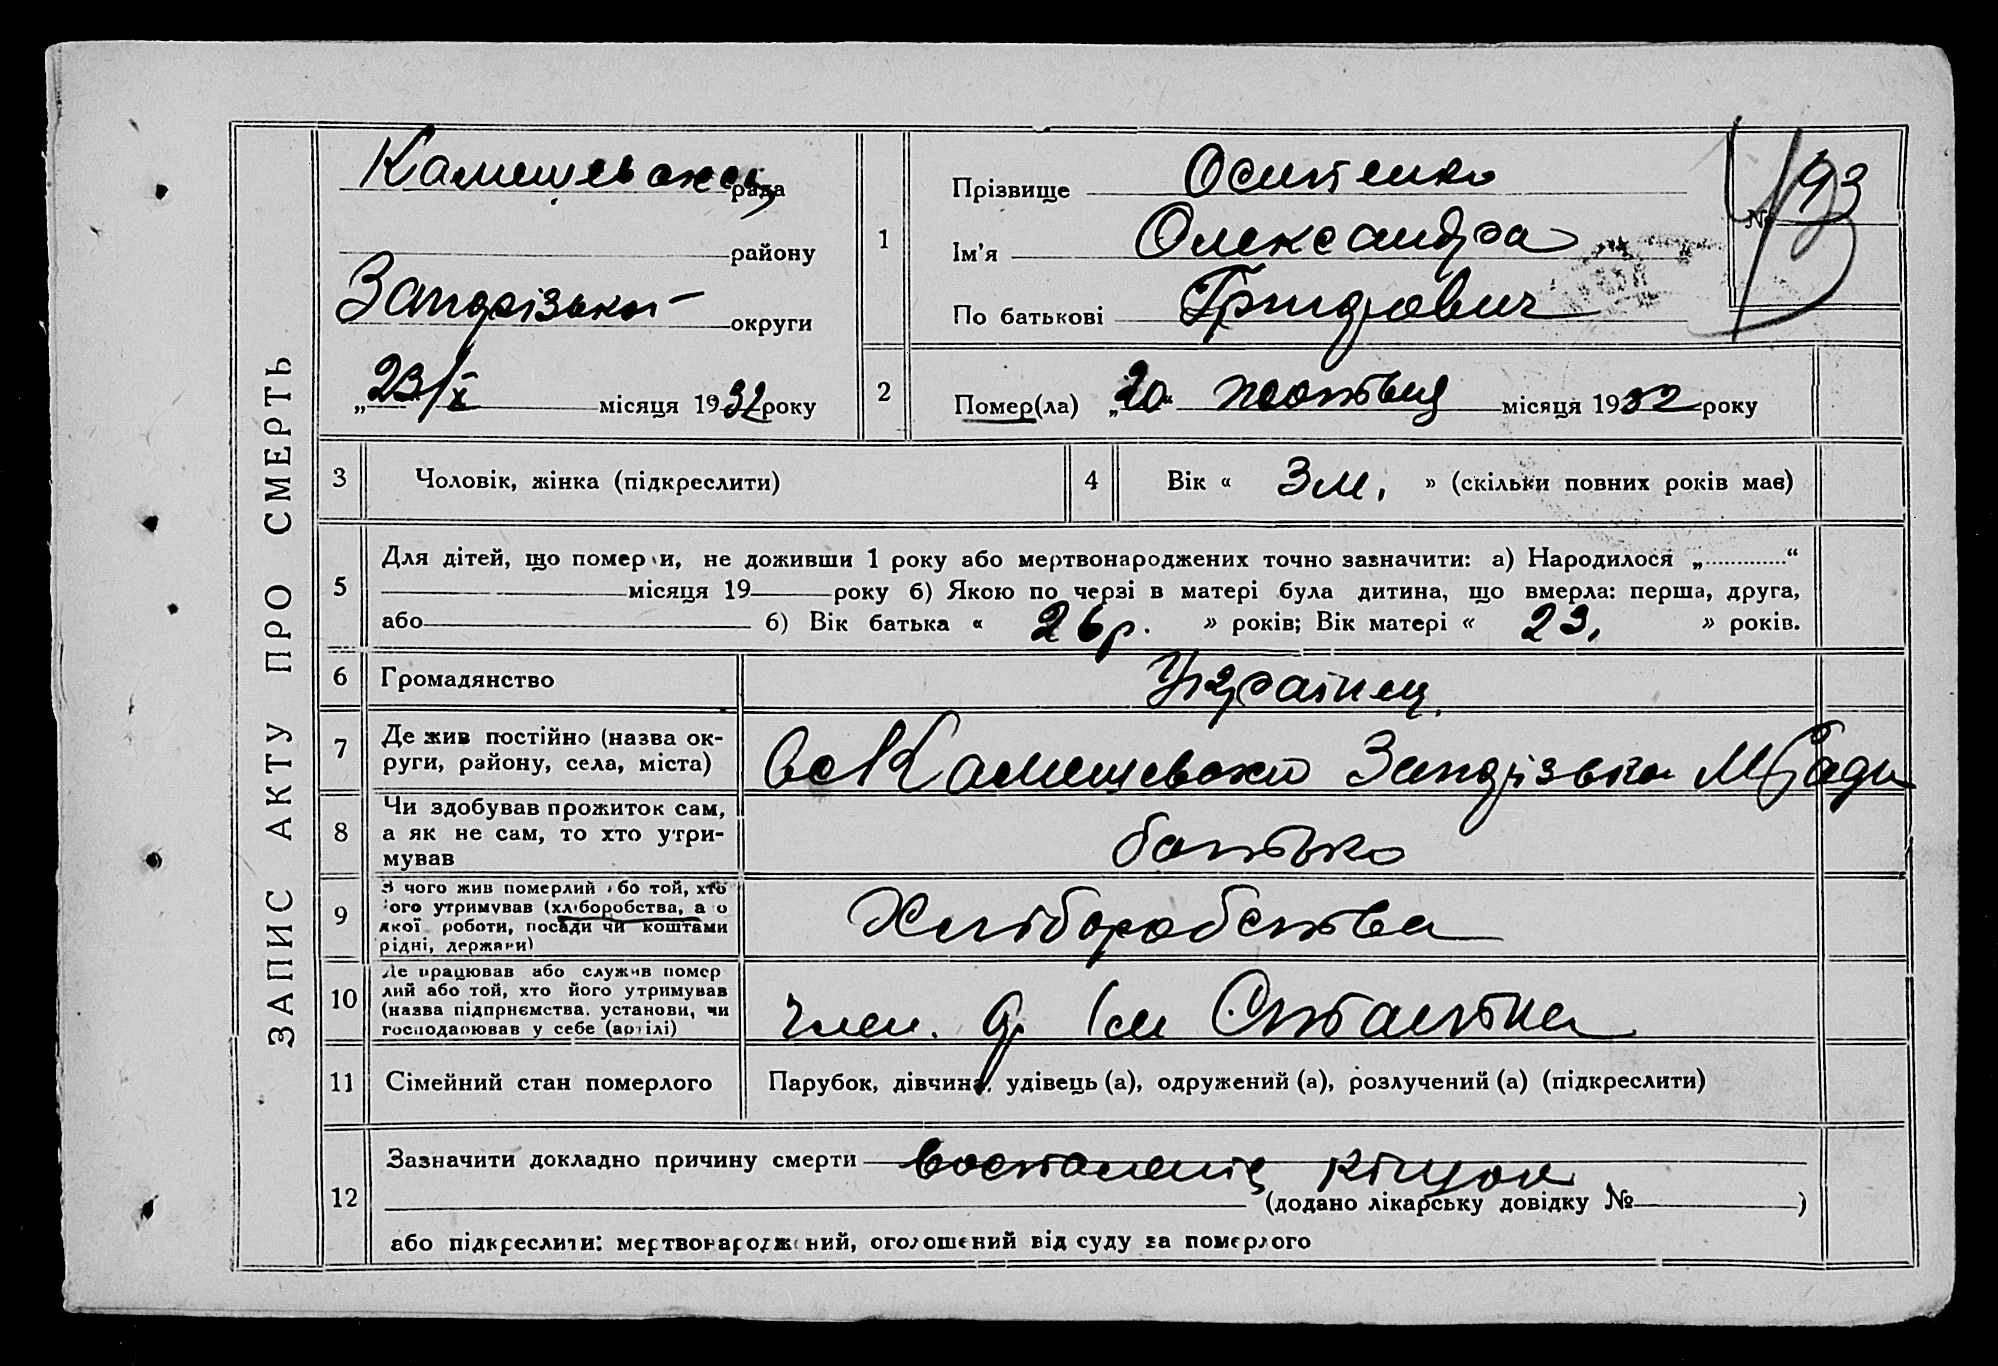 ЗАПИС АКТУ ПРО СМЕРТЬ
Камишеваськ рада
району
Запорізької округи
„23/X місяця 1932 року
1
Прізвище Осипенко
Ім'я Олександра
По батькові Григорович
№ 93
2
Помер(ла) „20“ жовтня місяця 1932 року
3 Чоловік, жінка (підкреслити)
4 Вік « 3 м. » (скільки повних років має)
5
Для дітей, що померли, не доживши 1 року або мертвонароджених точно зазначити: а) Народилося „ “
місяця 19 року б) Якою по черзі в матері була дитина, що вмерла: перша, друга,
або б) Вік батька « 26 р. » років; Вік матері « 23, » років.
6 Громадянство Українец.
7 Де жив постійно (назва ок-
руги, району, села, міста)
Камишеваха Запорізька М Ради
8 Чи здобував прожиток сам,
а як не сам, то хто утри-
мував
батько
9 З чого жив померлий або той, хто
його утримував (хліборобства, а о
якої роботи, посади чи коштами
рідні, держави)
Хліборобства
10 Де працював або служив помер
лий або той, хто його утримував
(назва підприємства, установи, чи
господарював у себе (артілі)
член. Сталіна
11 Сімейний стан померлого Парубок, дівчина, удівець (а), одружений (а), розлучений (а) (підкреслити)
12
Зазначити докладно причину смерти воспаленіє кішок
(додано лікарську довідку № )
або підкреслити: мертвонароджений, оголошений від суду за померлого